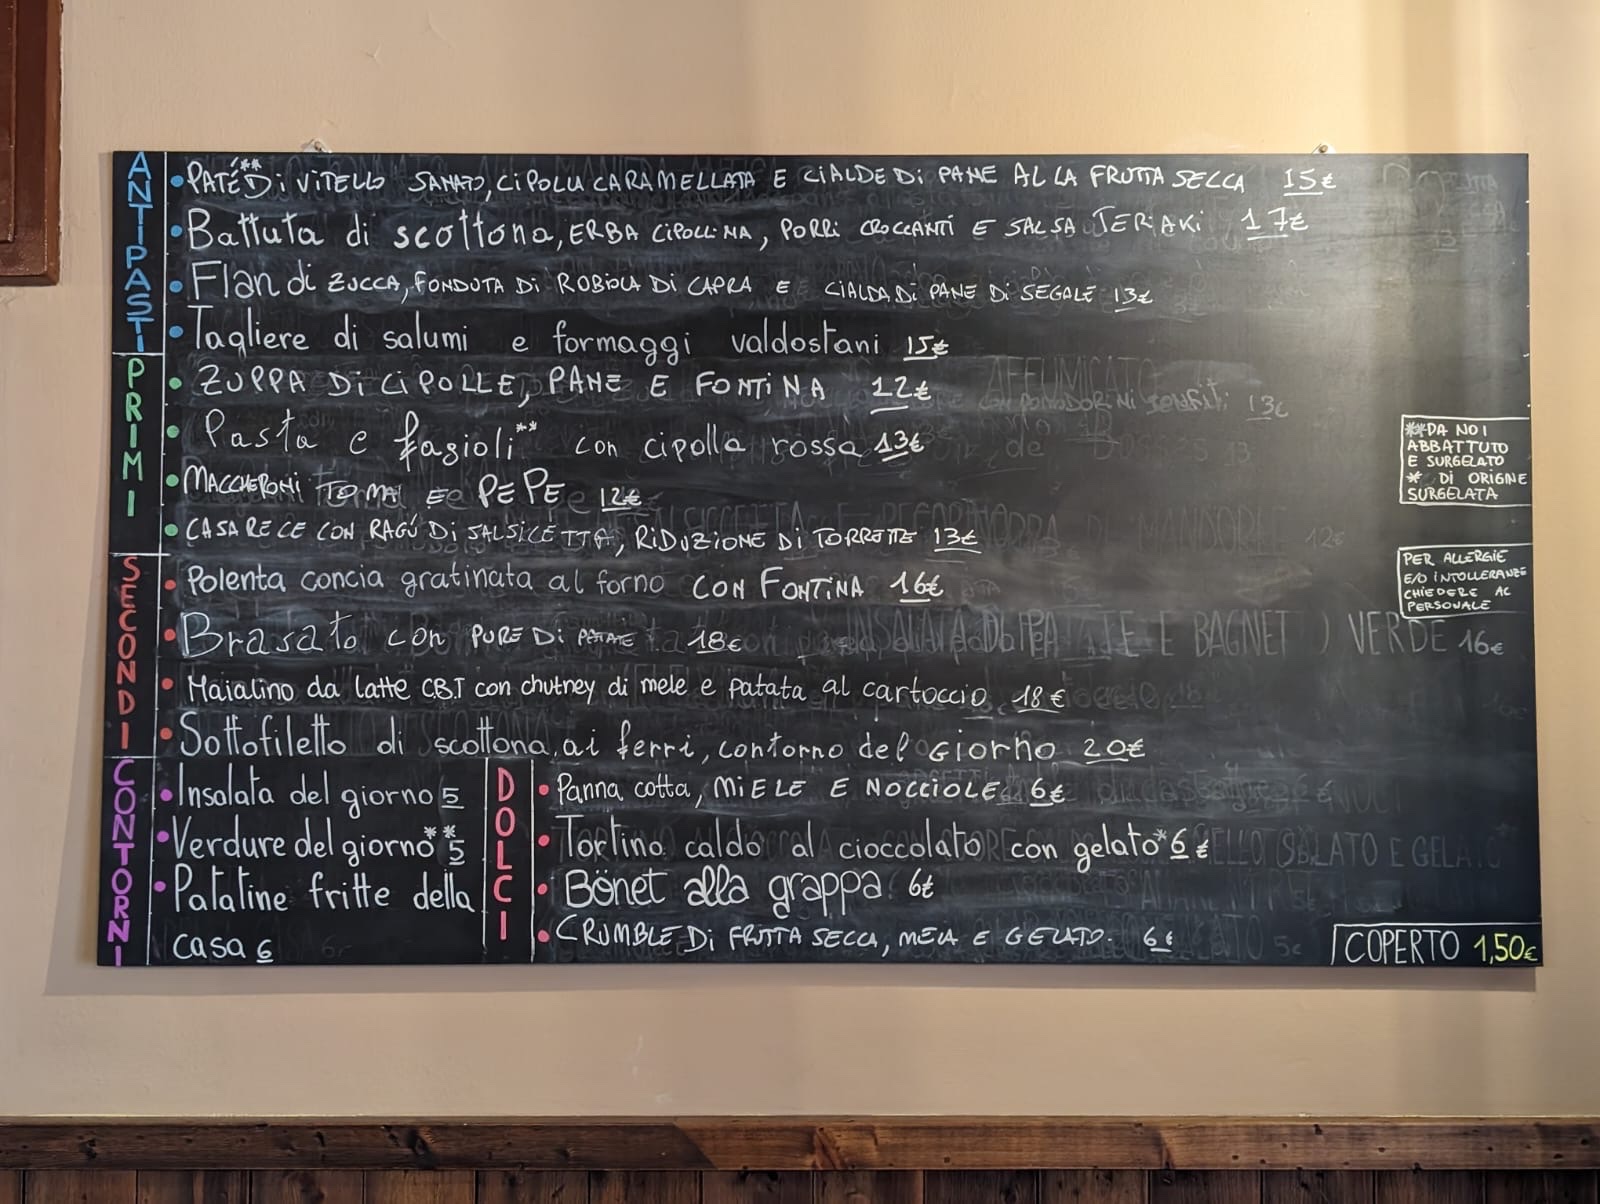 ANTIPASTI
PATÉ** Di ViTELLO SANATO, CiPOLLA CARAMELLATA E CiALDE Di PANE ALLA FRUTTA SECCA 15€
Battuta di scottona, ERBA CiPOLLiNA, PORRi CROCCANTi E SALSA TERiAKi 17€
Flan di ZUCCA, FONDUTA Di ROBiOLA Di CAPRA E CiALDA Di PANE Di SEGALE 13€
Tagliere di salumi e formaggi valdostani 15€
PRIMI
ZUPPA Di CiPOLLE, PANE E FONTiNA 12€
Pasta e fagioli** con cipolla rossa 13€
MACCHERONi TOMA E PEPE 12€
CASARECE CON RAGÚ Di SALSiCETTA, RiDUZiONE Di TORRETTE 13€
SECONDI
Polenta concia gratinata al forno CON FONTiNA 16€
Brasato con PURE Di PATATE 18€
Maialino da latte CBT con chutney di mele e patata al cartoccio 18€
Sottofiletto di scottona, ai ferri, contorno del GiorNo 20€
CONTORNI
Insalata del giorno 5
Verdure del giorno** 5
Patatine fritte della
casa 6
DOLCI
Panna cotta, MiELE E NOCCiOLE 6€
Tortino caldo al cioccolato con gelato* 6€
Bönet alla grappa 6€
CRUMBLE Di FRUTTA SECCA, MELA E GELATO. 6€
**DA NOI
ABBATTUTO
E SURGELATO
* DI ORIGINE
SURGELATA
PER ALLERGIE
E/O iNTOLLERANZE
CHIEDERE AL
PERSONALE
COPERTO 1,50€